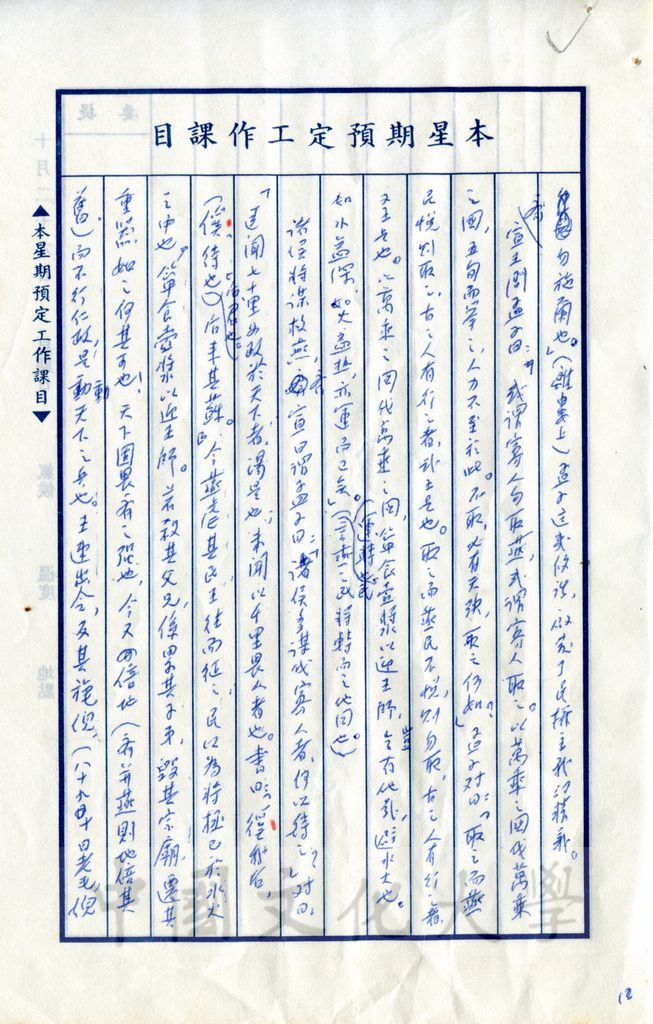 本星期預定工作課目
勿施爾也。」(離婁上)孟子這或修該,啟發了民權主義的精義。
齊宣王問孟子曰:「或謂寡人勿取燕,或謂寡人取之。以萬乘之國伐萬乘
之國,五旬而舉之,人力不至於此。不取,必有天殃,取之何如?」孟子對曰:「取之而燕
民悅則取之,古之人有行之者,武王是也。取之而燕民不悅,則勿取,古之人有行之者,
文王是也。以萬乘之國伐萬乘之國,簞食壺漿以迎王師,豈有他哉,避水火也。
如水益深,如火益熱,亦運而已矣」(運轉也)(言燕之民將轉而之他國也)
諸侯將謀救燕,齊宣王曰謂孟子曰:「諸侯多謀伐寡人者,何以待之?」對曰:
「臣聞七十里為政於天下者,湯是也,未聞以千里畏人者也。書曰:『徯我后,
(徯,待也)(后君也)后來其蘇。』今燕虐其民,王往而征之,民以為將拯己於水火
之中也,簞食壺漿以迎王師。若殺其父兄,係累其子弟,毀其宗廟,遷其
重器,如之何其可也!天下固畏齊之強也,今又倍地(齊并燕則地倍其
舊)而不行仁政,是動天下之兵也。王速出令,反其旄倪,(八十九十曰老毛倪
▲本星期預定工作課目▼
提要
十月
氣候
溫度
地點
中國文化大學
12